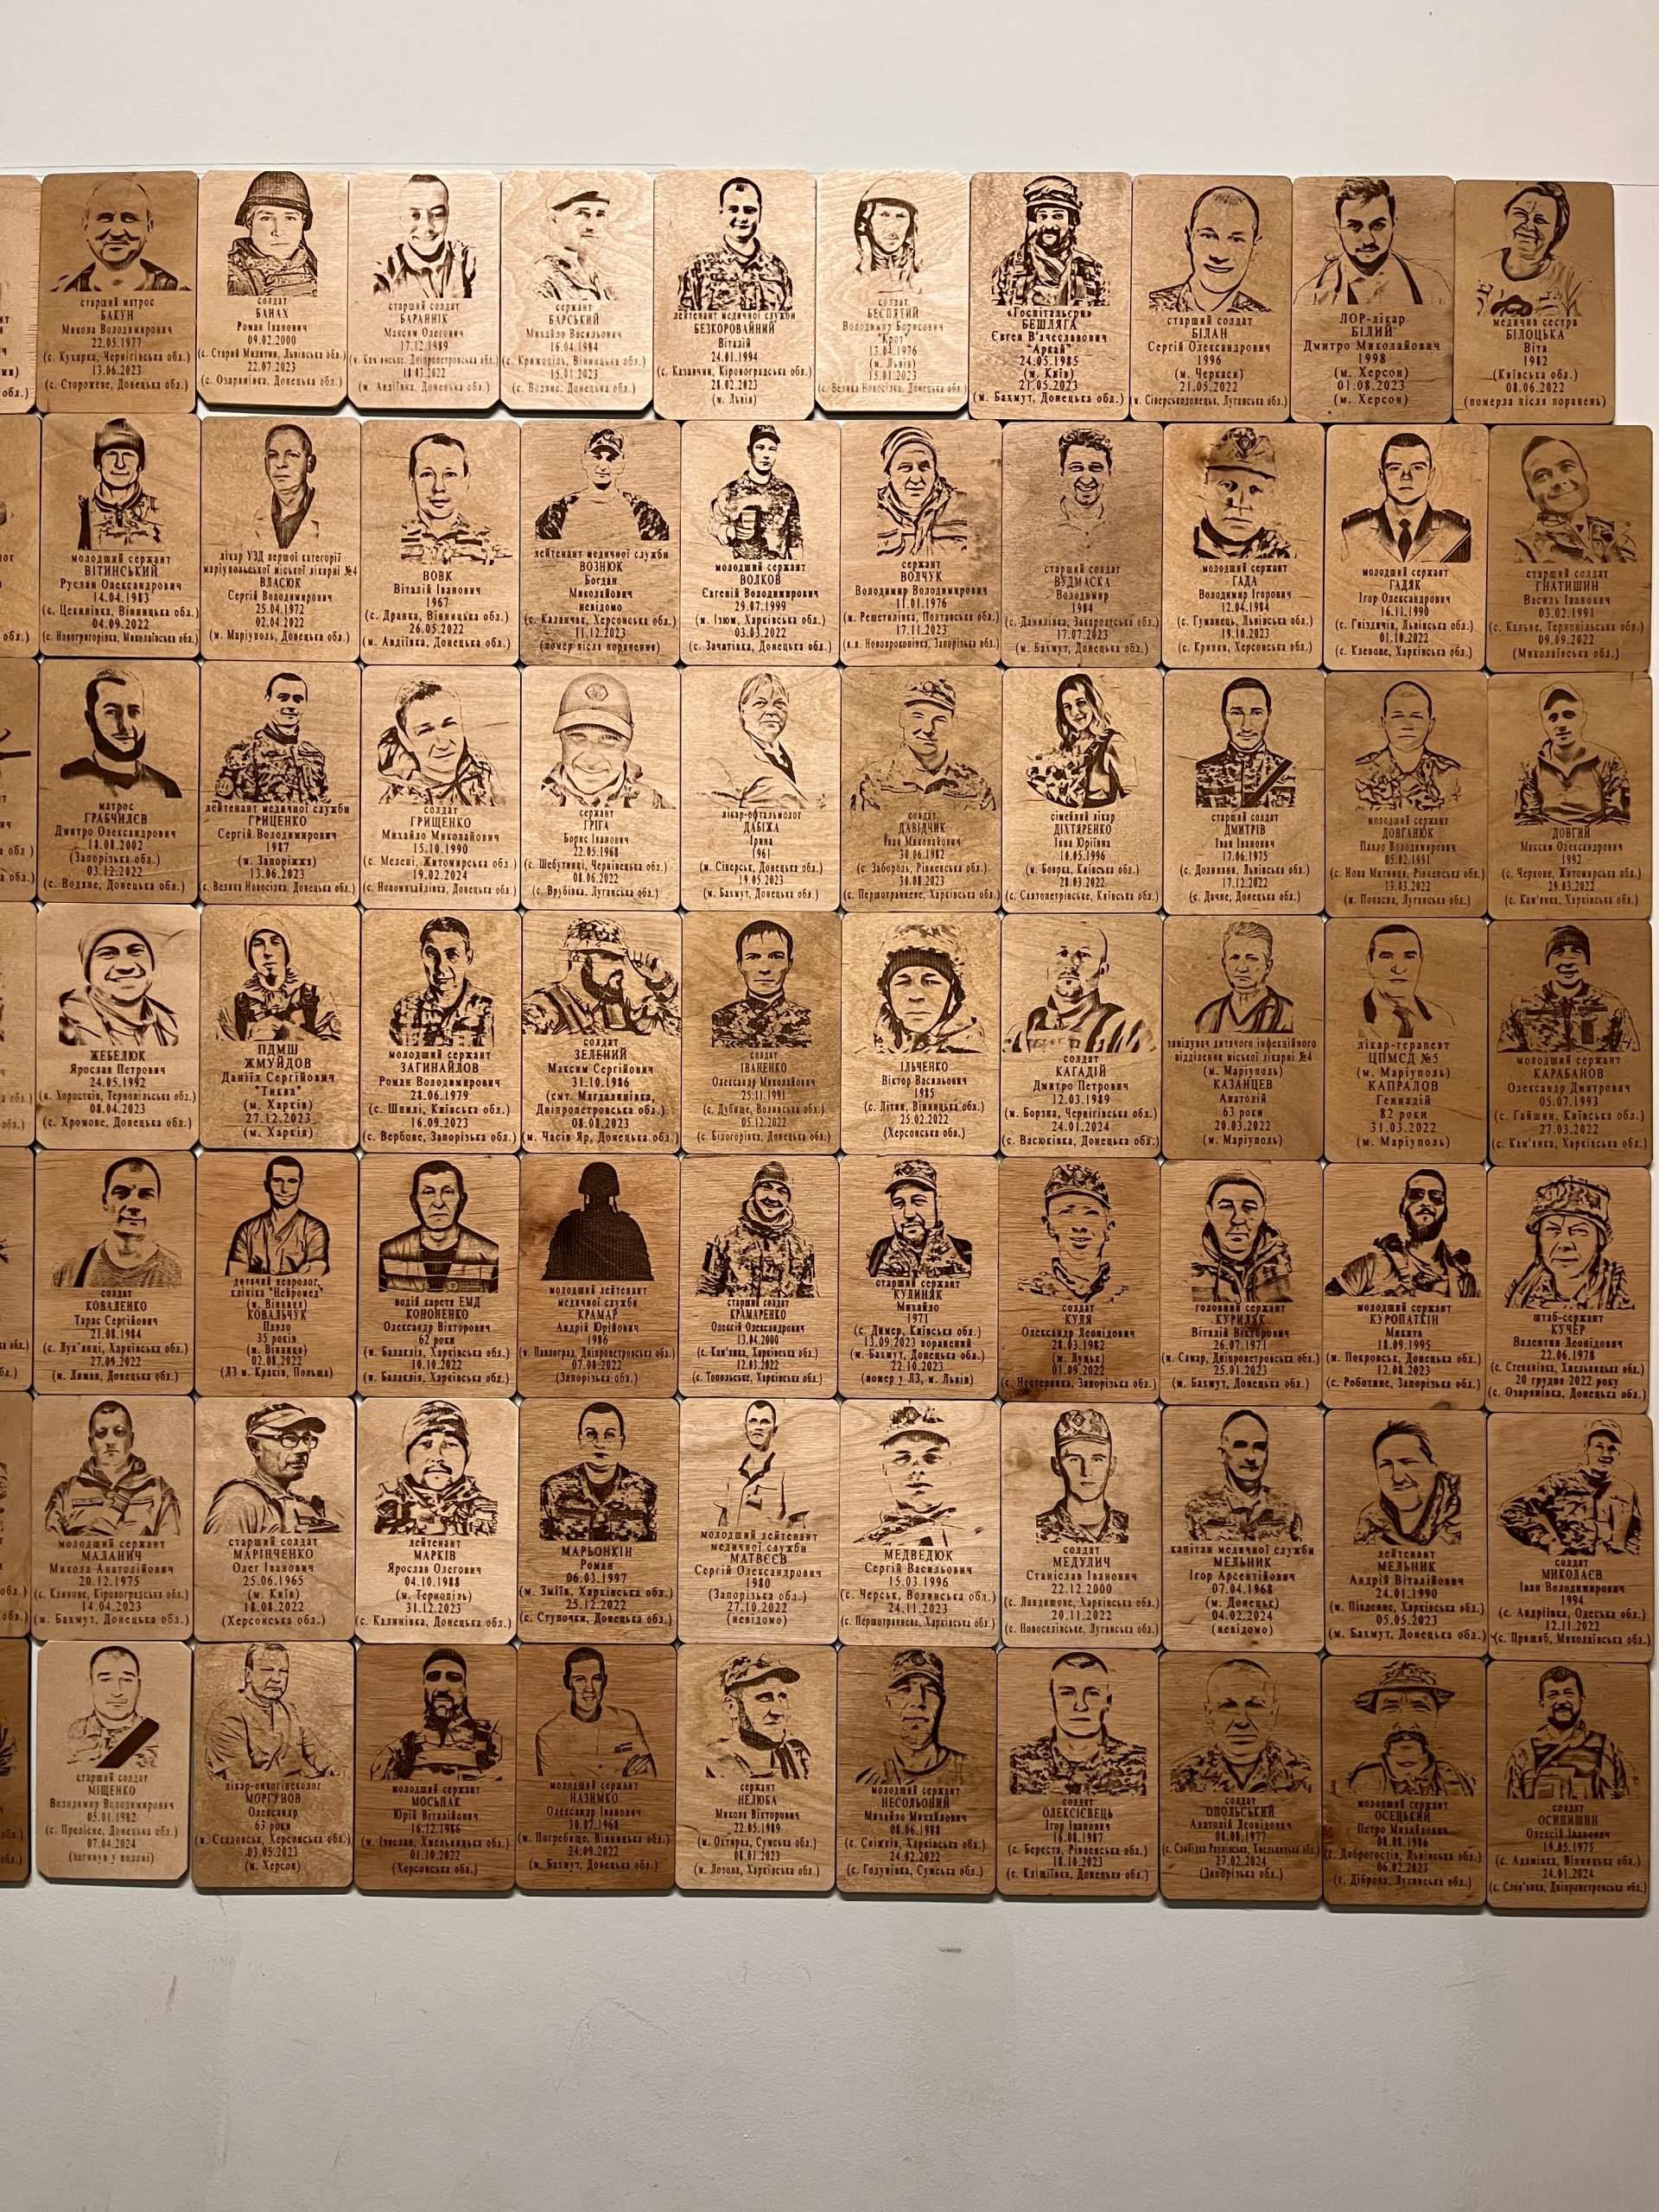 старший матрос
БАКУН
Микола Володимирович
22.05.1977
(с. Кухарка, Чернігівська обл.)
13.06.2023
(с. Сторожеве, Донецька обл.)
солдат
БАНАХ
Роман Іванович
09.02.2000
(с. Старий Милятин, Львівська обл.)
22.07.2023
(с. Озарянівка, Донецька обл.)
старший солдат
БАРАННІК
Максим Олегович
17.12.1989
(м. Кам'янське, Дніпропетровська обл.)
18.03.2022
(м. Авдіївка, Донецька обл.)
сержант
БАРСЬКИЙ
Михайло Васильович
16.04.1984
(с. Крижопіль, Вінницька обл.)
15.01.2023
(с. Водяне, Донецька обл.)
лейтенант медичної служби
БЕЗКОРОВАЙНИЙ
Віталій
24.01.1994
(с. Казавчин, Кіровоградська обл.)
28.02.2023
(м. Львів)
солдат
БЕСПЯТИЙ
Володимир Борисович
"Крот"
13.04.1976
(м. Львів)
15.01.2023
(с. Велика Новосілка, Донецька обл.)
«Госпітальєри»
БЕШЛЯГА
Євген В'ячеславович
"Аркан"
24.05.1985
(м. Київ)
21.05.2023
(м. Бахмут, Донецька обл.)
старший солдат
БІЛАН
Сергій Олександрович
1996
(м. Черкаси)
21.05.2022
(м. Сіверськодонецьк, Луганська обл.)
ЛОР-лікар
БІЛИЙ
Дмитро Миколайович
1998
(м. Херсон)
01.08.2023
(м. Херсон)
медична сестра
БІЛОЦЬКА
Віта
1982
(Київська обл.)
08.06.2022
(померла після поранень)
молодший сержант
ВІТИНСЬКИЙ
Руслан Олександрович
14.04.1983
(с. Цекинівка, Вінницька обл.)
04.09.2022
(с. Новогригорівка, Миколаївська обл.)
лікар УЗД першої категорії
маріупольської міської лікарні №4
ВЛАСЮК
Сергій Володимирович
25.04.1972
02.04.2022
(м. Маріуполь, Донецька обл.)
ВОВК
Віталій Іванович
1967
(с. Дранка, Вінницька обл.)
26.05.2022
(м. Авдіївка, Донецька обл.)
лейтенант медичної служби
ВОЗНЮК
Богдан
Миколайович
невідомо
(с. Каланчак, Херсонська обл.)
11.12.2023
(помер після поранення)
молодший сержант
ВОЛКОВ
Євгеній Володимирович
29.07.1999
(м. Ізюм, Харківська обл.)
03.03.2022
(с. Зачатівка, Донецька обл.)
сержант
ВОЛЧУК
Володимир Володимирович
11.01.1976
(м. Решетилівка, Полтавська обл.)
17.11.2023
(н.п. Новопрокопівка, Запорізька обл.)
старший солдат
ВУДМАСКА
Володимир
1984
(с. Данилівка, Закарпатська обл.)
17.07.2023
(м. Бахмут, Донецька обл.)
молодший сержант
ГАДА
Володимир Ігорович
12.04.1984
(с. Гуманець, Львівська обл.)
19.10.2023
(с. Кринки, Херсонська обл.)
молодший сержант
ГАДЯК
Ігор Олександрович
16.11.1990
(с. Гніздичів, Львівська обл.)
01.10.2022
(с. Кленове, Харківська обл.)
старший солдат
ГНАТИШИН
Василь Іванович
03.02.1991
(с. Кальне, Тернопільська обл.)
09.09.2022
(Миколаївська обл.)
матрос
ГРАБЧИЛЄВ
Дмитро Олександрович
18.08.2002
(Запорізька обл.)
03.12.2022
(с. Водяне, Донецька обл.)
лейтенант медичної служби
ГРИЦЕНКО
Сергій Володимирович
1987
(м. Запоріжжя)
13.06.2023
(с. Велика Новосілка, Донецька обл.)
солдат
ГРИЩЕНКО
Михайло Миколайович
15.10.1990
(с. Мелені, Житомирська обл.)
19.02.2024
(с. Новомихайлівка, Донецька обл.)
сержант
ГРІГА
Борис Іванович
22.05.1968
(с. Шебутинці, Чернівецька обл.)
08.06.2022
(с. Врубівка, Луганська обл.)
лікар-офтальмолог
ДАБІЖА
Ірина
1961
(м. Сіверськ, Донецька обл.)
19.05.2023
(м. Бахмут, Донецька обл.)
солдат
ДАВІДЧИК
Іван Миколайович
30.06.1982
(с. Забороль, Рівненська обл.)
30.08.2023
(с. Першотравневе, Харківська обл.)
сімейний лікар
ДІХТЯРЕНКО
Інна Юріївна
10.05.1996
(м. Боярка, Київська обл.)
28.03.2022
(с. Святопетрівське, Київська обл.)
старший солдат
ДМИТРІВ
Іван Іванович
17.06.1975
(с. Долиняни, Львівська обл.)
17.12.2022
(с. Дачне, Донецька обл.)
молодший сержант
ДОВГАНЮК
Павло Володимирович
05.02.1991
(с. Нова Митниця, Рівненська обл.)
13.03.2022
(м. Попасна, Луганська обл.)
ДОВГИЙ
Максим Олександрович
1992
(с. Червоне, Житомирська обл.)
29.03.2022
(с. Кам'янка, Харківська обл.)
ЖЕБЕЛЮК
Ярослав Петрович
24.05.1992
(м. Хоростків, Тернопільська обл.)
08.04.2023
(с. Хромове, Донецька обл.)
ПДМШ
ЖМУЙДОВ
Данііл Сергійович
"Тиква"
(м. Харків)
27.12.2023
(м. Харків)
молодший сержант
ЗАГИНАЙЛОВ
Роман Володимирович
28.06.1979
(с. Шпилі, Київська обл.)
16.09.2023
(с. Вербове, Запорізька обл.)
солдат
ЗЕЛЕНИЙ
Максим Сергійович
31.10.1986
(смт. Магдалинівка,
Дніпропетровська обл.)
08.08.2023
(м. Часів Яр, Донецька обл.)
солдат
ІВАНЕНКО
Олександр Миколайович
25.11.1991
(с. Дубище, Волинська обл.)
05.12.2022
(с. Білогорівка, Донецька обл.)
ІЛЬЧЕНКО
Віктор Васильович
1985
(с. Літин, Вінницька обл.)
25.02.2022
(Херсонська обл.)
солдат
КАГАДІЙ
Дмитро Петрович
12.03.1989
(м. Борзна, Чернігівська обл.)
24.01.2024
(с. Васюківка, Донецька обл.)
завідувач дитячого інфекційного
відділення міської лікарні №4
(м. Маріуполь)
КАЗАНЦЕВ
Анатолій
63 роки
20.03.2022
(м. Маріуполь)
лікар-терапевт
ЦПМСД №5
(м. Маріуполь)
КАПРАЛОВ
Геннадій
82 роки
31.03.2022
(м. Маріуполь)
молодший сержант
КАРАБАНОВ
Олександр Дмитрович
05.07.1993
(с. Гайшин, Київська обл.)
27.03.2022
(с. Кам'янка, Харківська обл.)
солдат
КОВАЛЕНКО
Тарас Сергійович
21.08.1984
(с. Лук'янці, Харківська обл.)
27.09.2022
(м. Лиман, Донецька обл.)
дитячий невролог,
клініка "Нейромед"
(м. Вінниця)
КОВАЛЬЧУК
Павло
35 років
(м. Вінниця)
02.08.2022
(ЛЗ м. Краків, Польща)
водій карети ЕМД
КОНОНЕНКО
Олександр Вікторович
62 роки
(м. Балаклія, Харківська обл.)
10.10.2022
(м. Балаклія, Харківська обл.)
молодший лейтенант
медичної служби
КРАМАР
Андрій Юрійович
1986
(м. Павлоград, Дніпропетровська обл.)
07.08.2022
(Запорізька обл.)
старший солдат
КРАМАРЕНКО
Олексій Олександрович
13.04.2000
(с. Кам'янка, Харківська обл.)
12.03.2022
(с. Топольське, Харківська обл.)
старший сержант
КУЛИНЯК
Михайло
1971
(с. Димер, Київська обл.)
13.09.2023 поранений
(м. Бахмут, Донецька обл.)
22.10.2023
(помер у ЛЗ, м. Львів)
солдат
КУЛЯ
Олександр Леонідович
28.03.1982
(м. Луцьк)
01.09.2022
(с. Нестерянка, Запорізька обл.)
головний сержант
КУРИЛЯК
Віталій Вікторович
26.07.1971
(м. Самар, Дніпропетровська обл.)
25.01.2023
(м. Бахмут, Донецька обл.)
молодший сержант
КУРОПАТКІН
Микита
18.09.1995
(м. Покровськ, Донецька обл.)
12.08.2023
(с. Роботине, Запорізька обл.)
штаб-сержант
КУЧЕР
Валентин Леонідович
22.06.1978
(с. Степанівка, Хмельницька обл.)
20 грудня 2022 року
(с. Озарянівка, Донецька обл.)
молодший сержант
МАЛАНИЧ
Микола Анатолійович
20.12.1975
(с. Клинове, Кіровоградська обл.)
14.04.2023
(м. Бахмут, Донецька обл.)
старший солдат
МАРІНЧЕНКО
Олег Іванович
25.06.1965
(м. Київ)
18.08.2022
(Херсонська обл.)
лейтенант
МАРКІВ
Ярослав Олегович
04.10.1988
(м. Тернопіль)
31.12.2023
(с. Калинівка, Донецька обл.)
МАРЬОНКІН
Роман
06.03.1997
(м. Зміїв, Харківська обл.)
25.12.2022
(с. Ступочки, Донецька обл.)
молодший лейтенант
медичної служби
МАТВЄЄВ
Сергій Олександрович
1980
(Запорізька обл.)
27.10.2022
(невідомо)
МЕДВЕДЮК
Сергій Васильович
15.03.1996
(с. Черськ, Волинська обл.)
24.11.2023
(с. Першотравневе, Харківська обл.)
солдат
МЕДУЛИЧ
Станіслав Іванович
22.12.2000
(с. Ландишове, Харківська обл.)
20.11.2022
(с. Новоселівське, Луганська обл.)
капітан медичної служби
МЕЛЬНИК
Ігор Арсентійович
07.04.1968
(м. Донецьк)
04.02.2024
(невідомо)
лейтенант
МЕЛЬНИК
Андрій Віталійович
24.01.1990
(м. Південне, Харківська обл.)
05.05.2023
(м. Бахмут, Донецька обл.)
солдат
МИКОЛАЄВ
Іван Володимирович
1994
(с. Андріївка, Одеська обл.)
12.11.2022
(с. Пришиб, Миколаївська обл.)
старший солдат
МІЩЕНКО
Володимир Володимирович
05.01.1982
(с. Прелісне, Донецька обл.)
07.04.2024
(загинув у полоні)
лікар-онкогінеколог
МОРГУНОВ
Олександр
63 роки
(м. Скадовськ, Херсонська обл.)
03.05.2023
(м. Херсон)
молодший сержант
МОСЬПАК
Юрій Віталійович
16.12.1986
(м. Ізяслав, Хмельницька обл.)
01.10.2022
(Херсонська обл.)
молодший сержант
НАЗИМКО
Олександр Іванович
30.07.1968
(м. Погребище, Вінницька обл.)
24.09.2022
(м. Бахмут, Донецька обл.)
сержант
НЕЛЮБА
Микола Вікторович
22.05.1989
(м. Охтирка, Сумська обл.)
08.01.2023
(м. Лозова, Харківська обл.)
молодший сержант
НЕСОЛЬОНИЙ
Михайло Михайлович
08.06.1988
(с. Сніжків, Харківська обл.)
24.02.2022
(с. Годунівка, Сумська обл.)
солдат
ОЛЕКСІЄВЕЦЬ
Ігор Іванович
16.08.1987
(с. Берестя, Рівненська обл.)
18.10.2023
(с. Кліщіївка, Донецька обл.)
солдат
ОПОЛЬСЬКИЙ
Анатолій Леонідович
08.08.1977
27.02.2024
(Запорізька обл.)
молодший сержант
ОСЕЦЬКИЙ
Петро Михайлович
08.08.1986
(с. Доброгостів, Львівська обл.)
06.02.2023
(с. Діброва, Луганська обл.)
солдат
ОСИПИШИН
Олексій Іванович
19.05.1975
(с. Адамівка, Вінницька обл.)
24.01.2024
(с. Слов'янка, Дніпропетровська обл.)